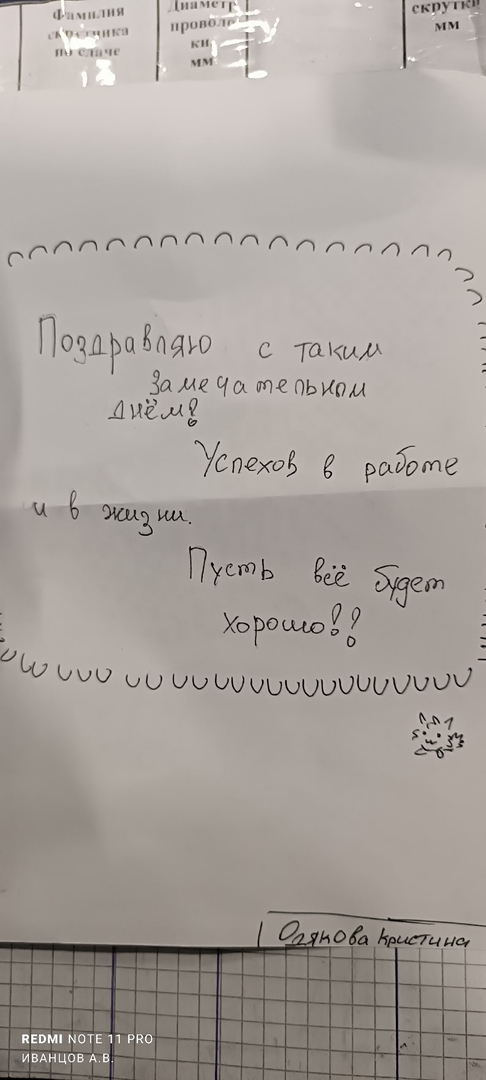 Фамилия
скрутчика
по сдаче
Диаметр
проволо
ки
мм
скрутки
мм
Поздравляю с таким
замечательным
днём!
Успехов в работе
и в жизни.
Пусть всё будет
хорошо!!
Кристина
REDMI NOTE 11 PRO
ИВАНЦОВ А.В.